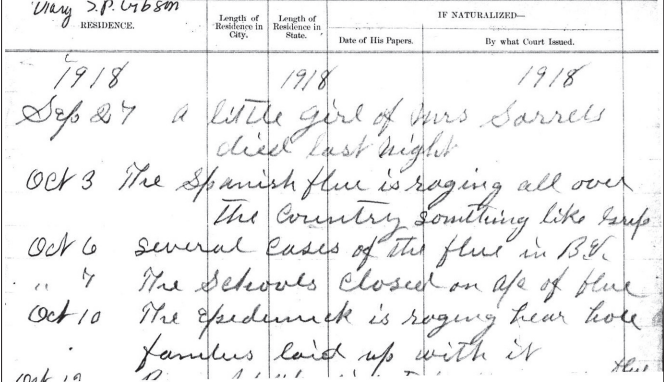 Diary S.P. Gibson
RESIDENCE.
Length of Residence in City.
Length of Residence in State.
IF NATURALIZED—
Date of His Papers.
By what Court Issued.
1918 1918 1918
Sep 27 a little Girl of Mrs Sorrels
died last night
Oct 3 The Spanish flue is raging all over
the Country somthing like Grip
Oct 6 several cases of the flue in
" 7 The Schools Closed on a/c of flue
Oct 10 The Epedemick is raging hear hole
famlies laid up with it